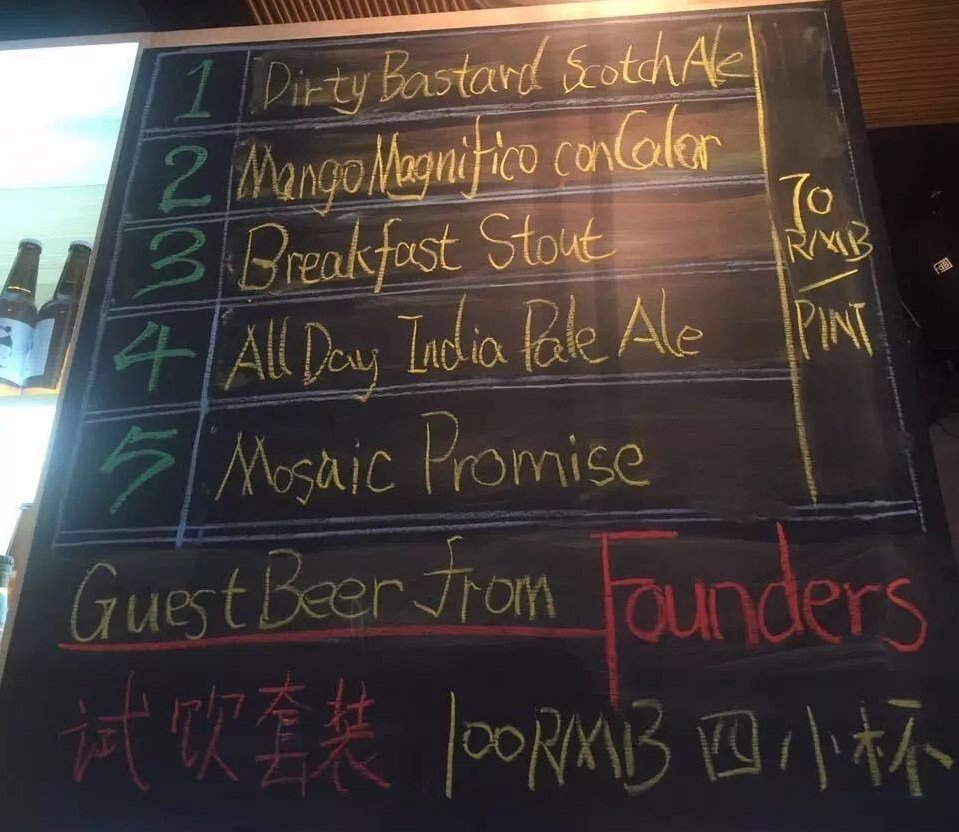 1 Dirty Bastard Scotch Ale
2 Mango Magnifico con Calor
3 Breakfast Stout
4 All Day India Pale Ale
5 Mosaic Promise
70
RMB
/
PINT
Guest Beer from Founders
试饮套装 100RMB 四小杯